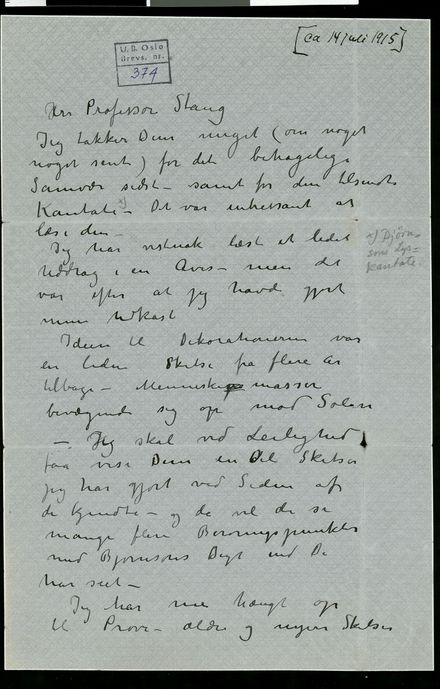 [ca 14 juli 1915]
U.B. Oslo
Brevs. nr.
374
Hr Professor Stang
Jeg takker Dem meget (om noget
noget sent) for det behagelige
Samvær sidst – samt for den tilsendte
Kantate x) – Det var interessant at
læse den –
Jeg har vistnok læst et lidet
Uddrag i en Avis – men det
var efter at jeg havde gjort
mine Udkast
x) Bjørn-
sons Lys-
kantate.
Ideen til Dekorationerne var
en liden Skitse fra flere Aar
tilbage – Menneskemasser
bevægende sig op mod Solen
– Jeg skal ved Leilighed
faa vise Dem en Del Skitser
jeg har gjort ved Siden af
de kjendte – og da vil De se
mange flere Berøringspunkter
med Bjørnsons Digt end De
har seet –
Jeg har nu hængt op
til Prøve – ældre og nyere Skitser